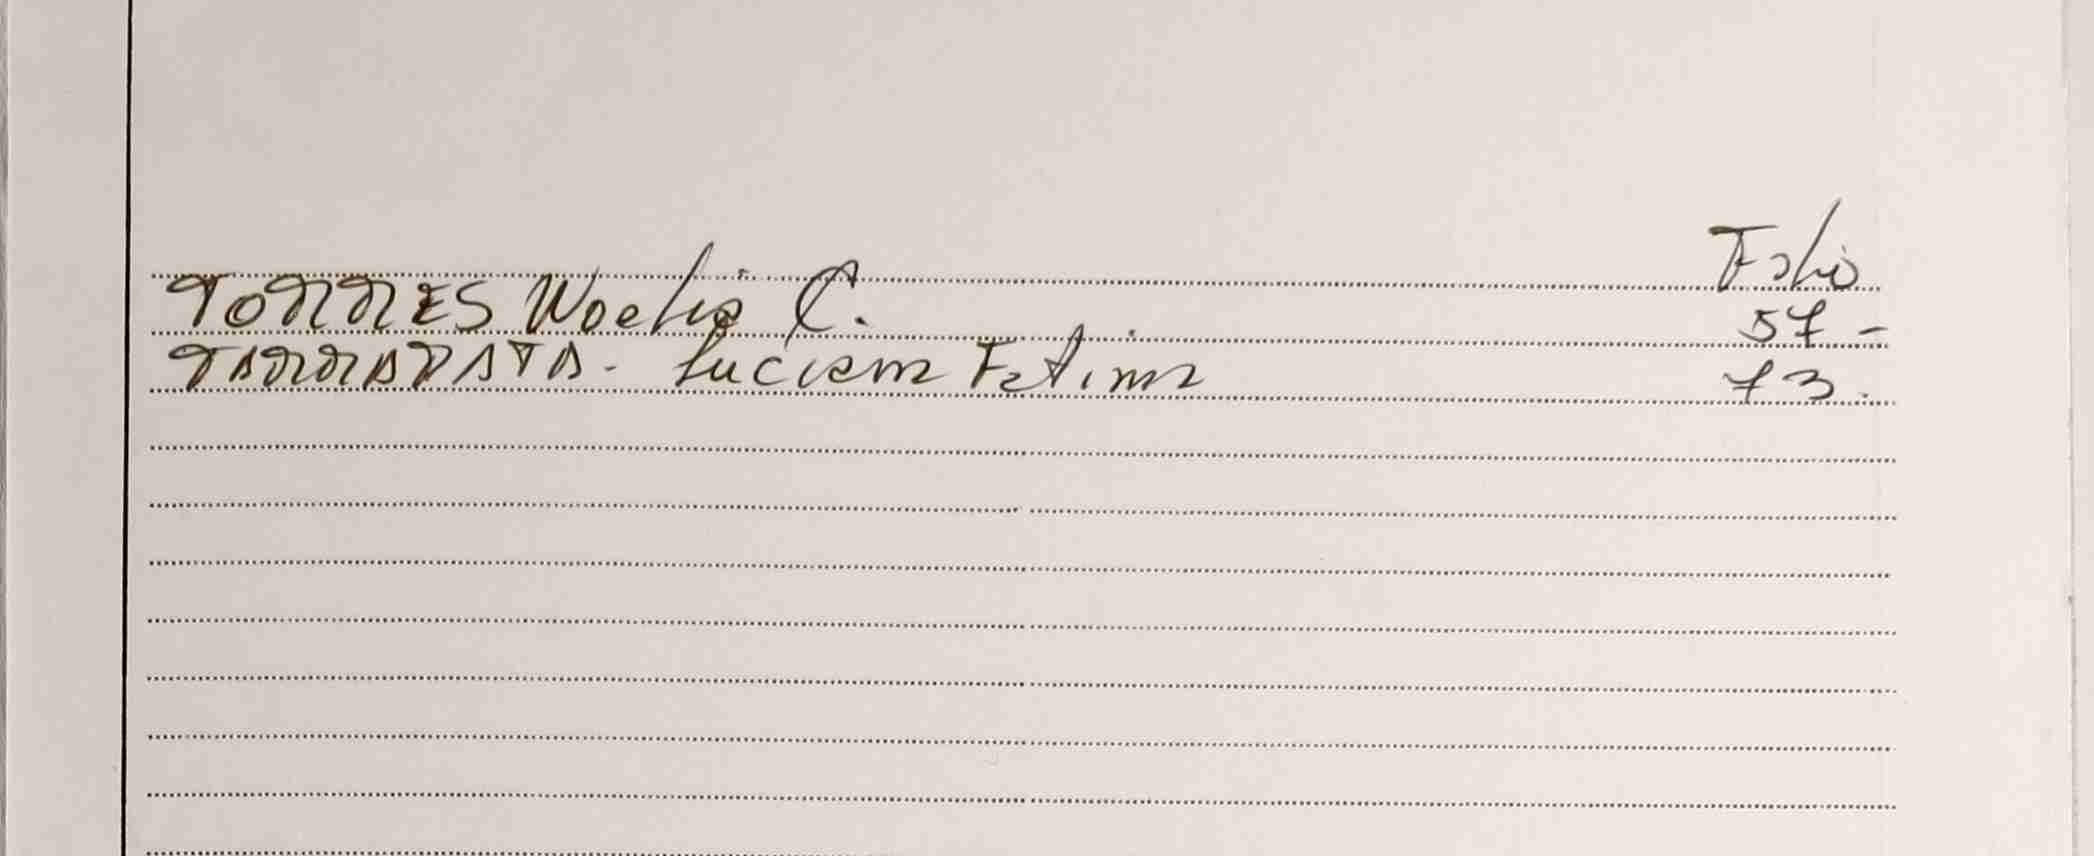 Folio
TORRES Noelia C. 57 -
TARRADATA - Luciana Fatima 73.